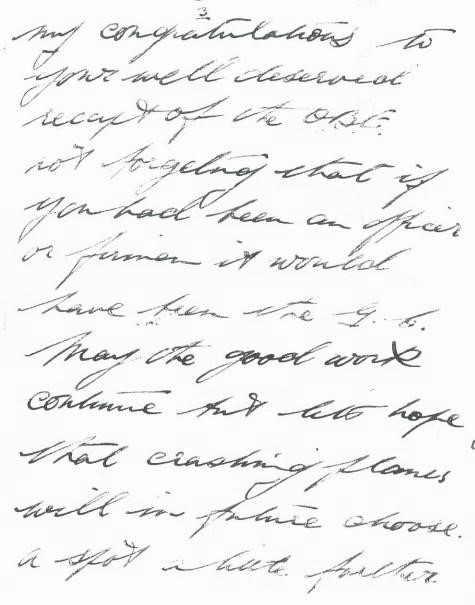 3
my congratulations to
your well deserved
receipt of the OBE.
not forgeting that if
you had been an officer
or firemen it would
have been the G.C.
May the good work
continue And lets hope
that crashing planes
will in future choose.
a spot a little further.